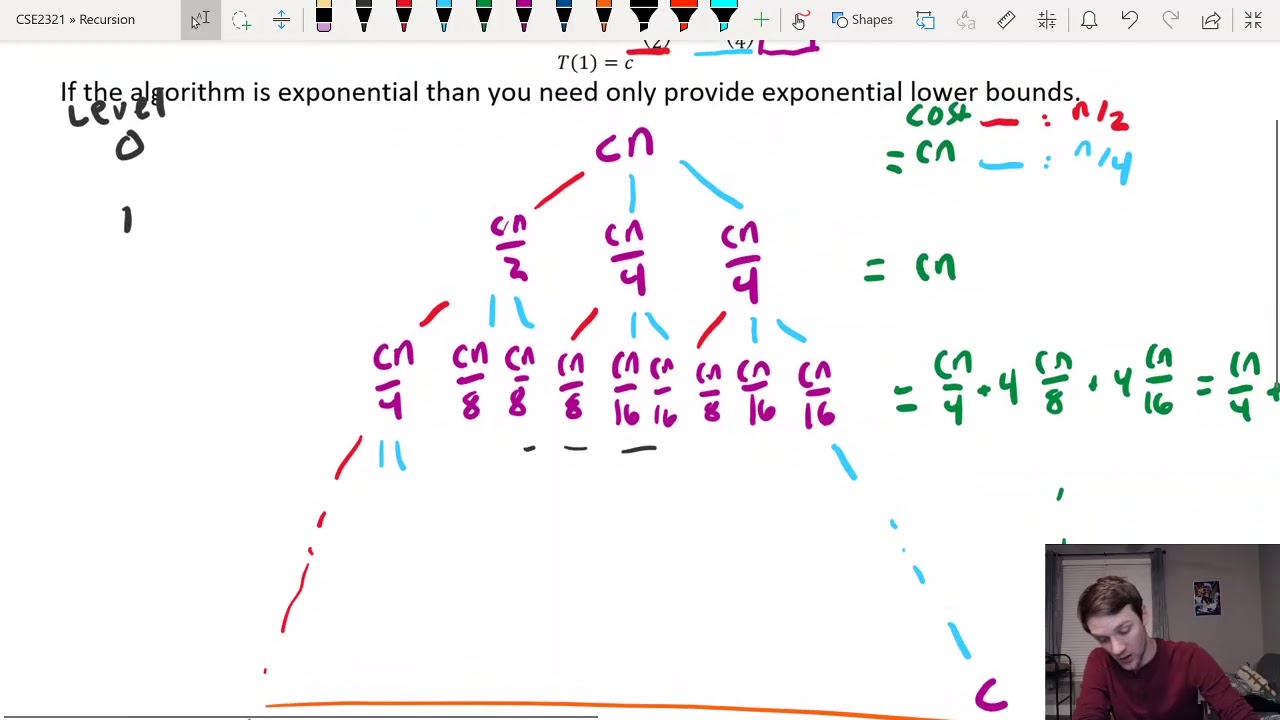 CSE2321 » Recursion
Shapes
(2) (4)
T(1) = c
If the algorithm is exponential than you need only provide exponential lower bounds.
Level
0
1
cost — : n/2
= cn — : n/4
cn
cn/2 cn/4 cn/4 = cn
cn/4 cn/8 cn/8 cn/8 cn/16 cn/16 cn/8 cn/16 cn/16 = cn/4 + 4 cn/8 + 4 cn/16 = cn/4 +
c